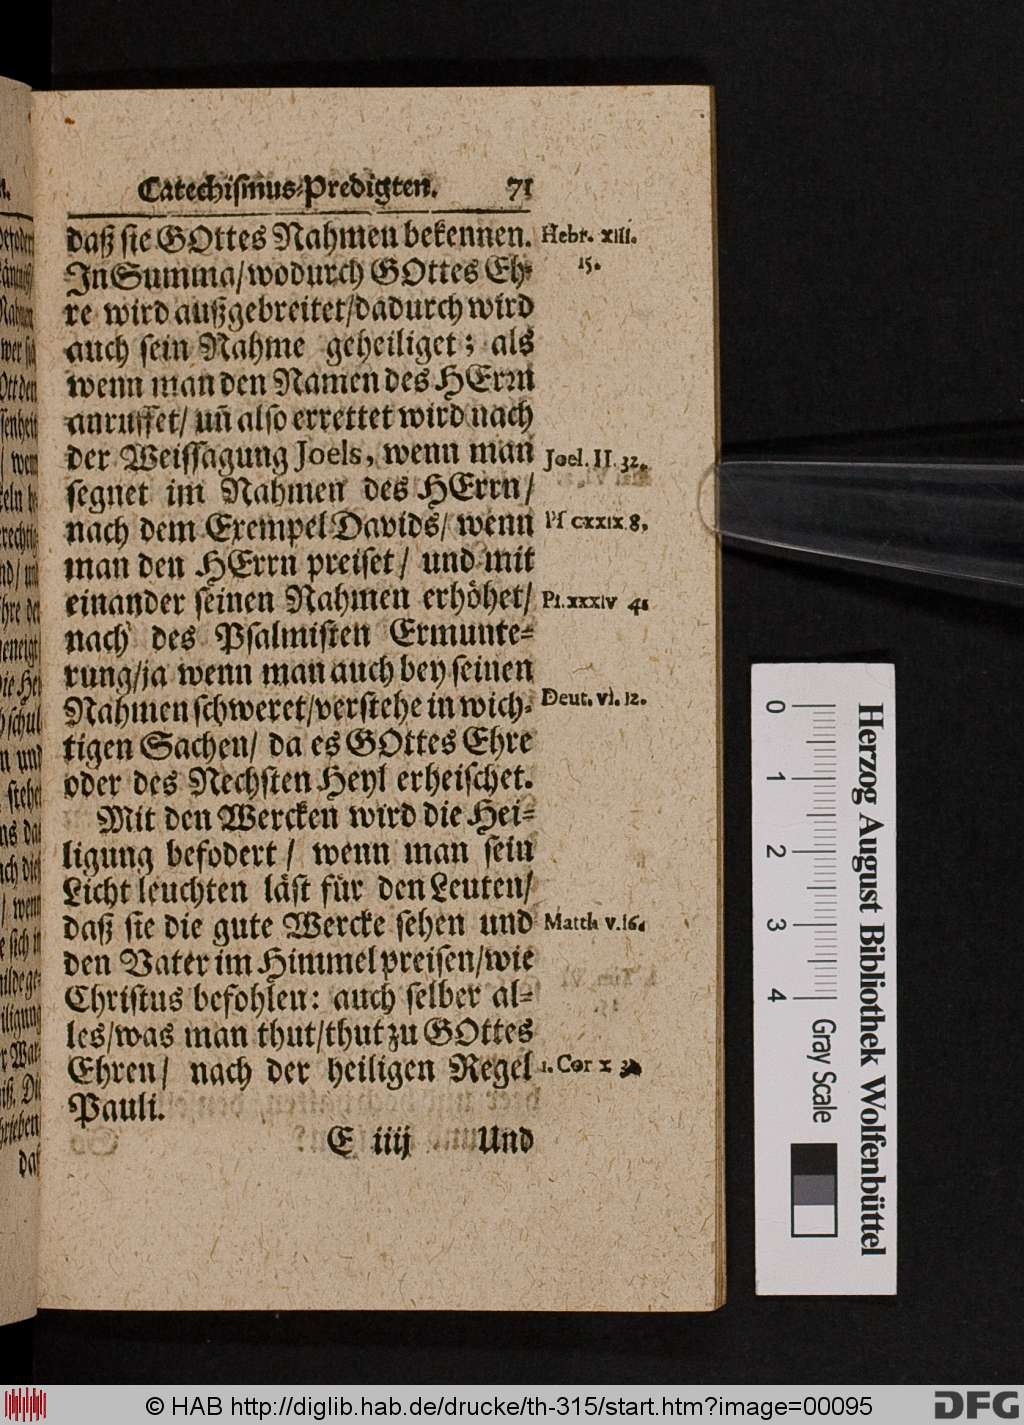 Catechismus-Predigten. 71
daß sie GOttes Nahmen bekennen. Hebr. XIII.
15.
In Summa/wodurch GOttes Eh-
re wird außgebreitet/dadurch wird
auch sein Nahme geheiliget; als
wenn man den Namen des HErrn
anruffet/ uñ also errettet wird nach
der Weissagung Joels, wenn man Joel. II. 32.
segnet im Nahmen des HErrn/
nach dem Exempel Davids/ wenn Ps CXXIX 8.
man den HErrn preiset/ und mit
einander seinen Nahmen erhöhet/ Ps. XXXIV 4.
nach des Psalmisten Ermunte-
rung/ja wenn man auch bey seinen
Nahmen schweret/verstehe in wich- Deut. VI. 12.
tigen Sachen/ da es GOttes Ehre
oder des Nechsten Heyl erheischet.
Mit den Wercken wird die Hei-
ligung befodert/ wenn man sein
Licht leuchten läst für den Leuten/
daß sie die gute Wercke sehen und Matth V. 16.
den Vater im Himmel preisen/wie
Christus befohlen: auch selber al-
les/was man thut/thut zu GOttes
Ehren/ nach der heiligen Regel 1. Cor X
Pauli.
E iiij Und
0 1 2 3 4
Gray Scale
Herzog August Bibliothek Wolfenbüttel
© HAB http://diglib.hab.de/drucke/th-315/start.htm?image=00095
DFG